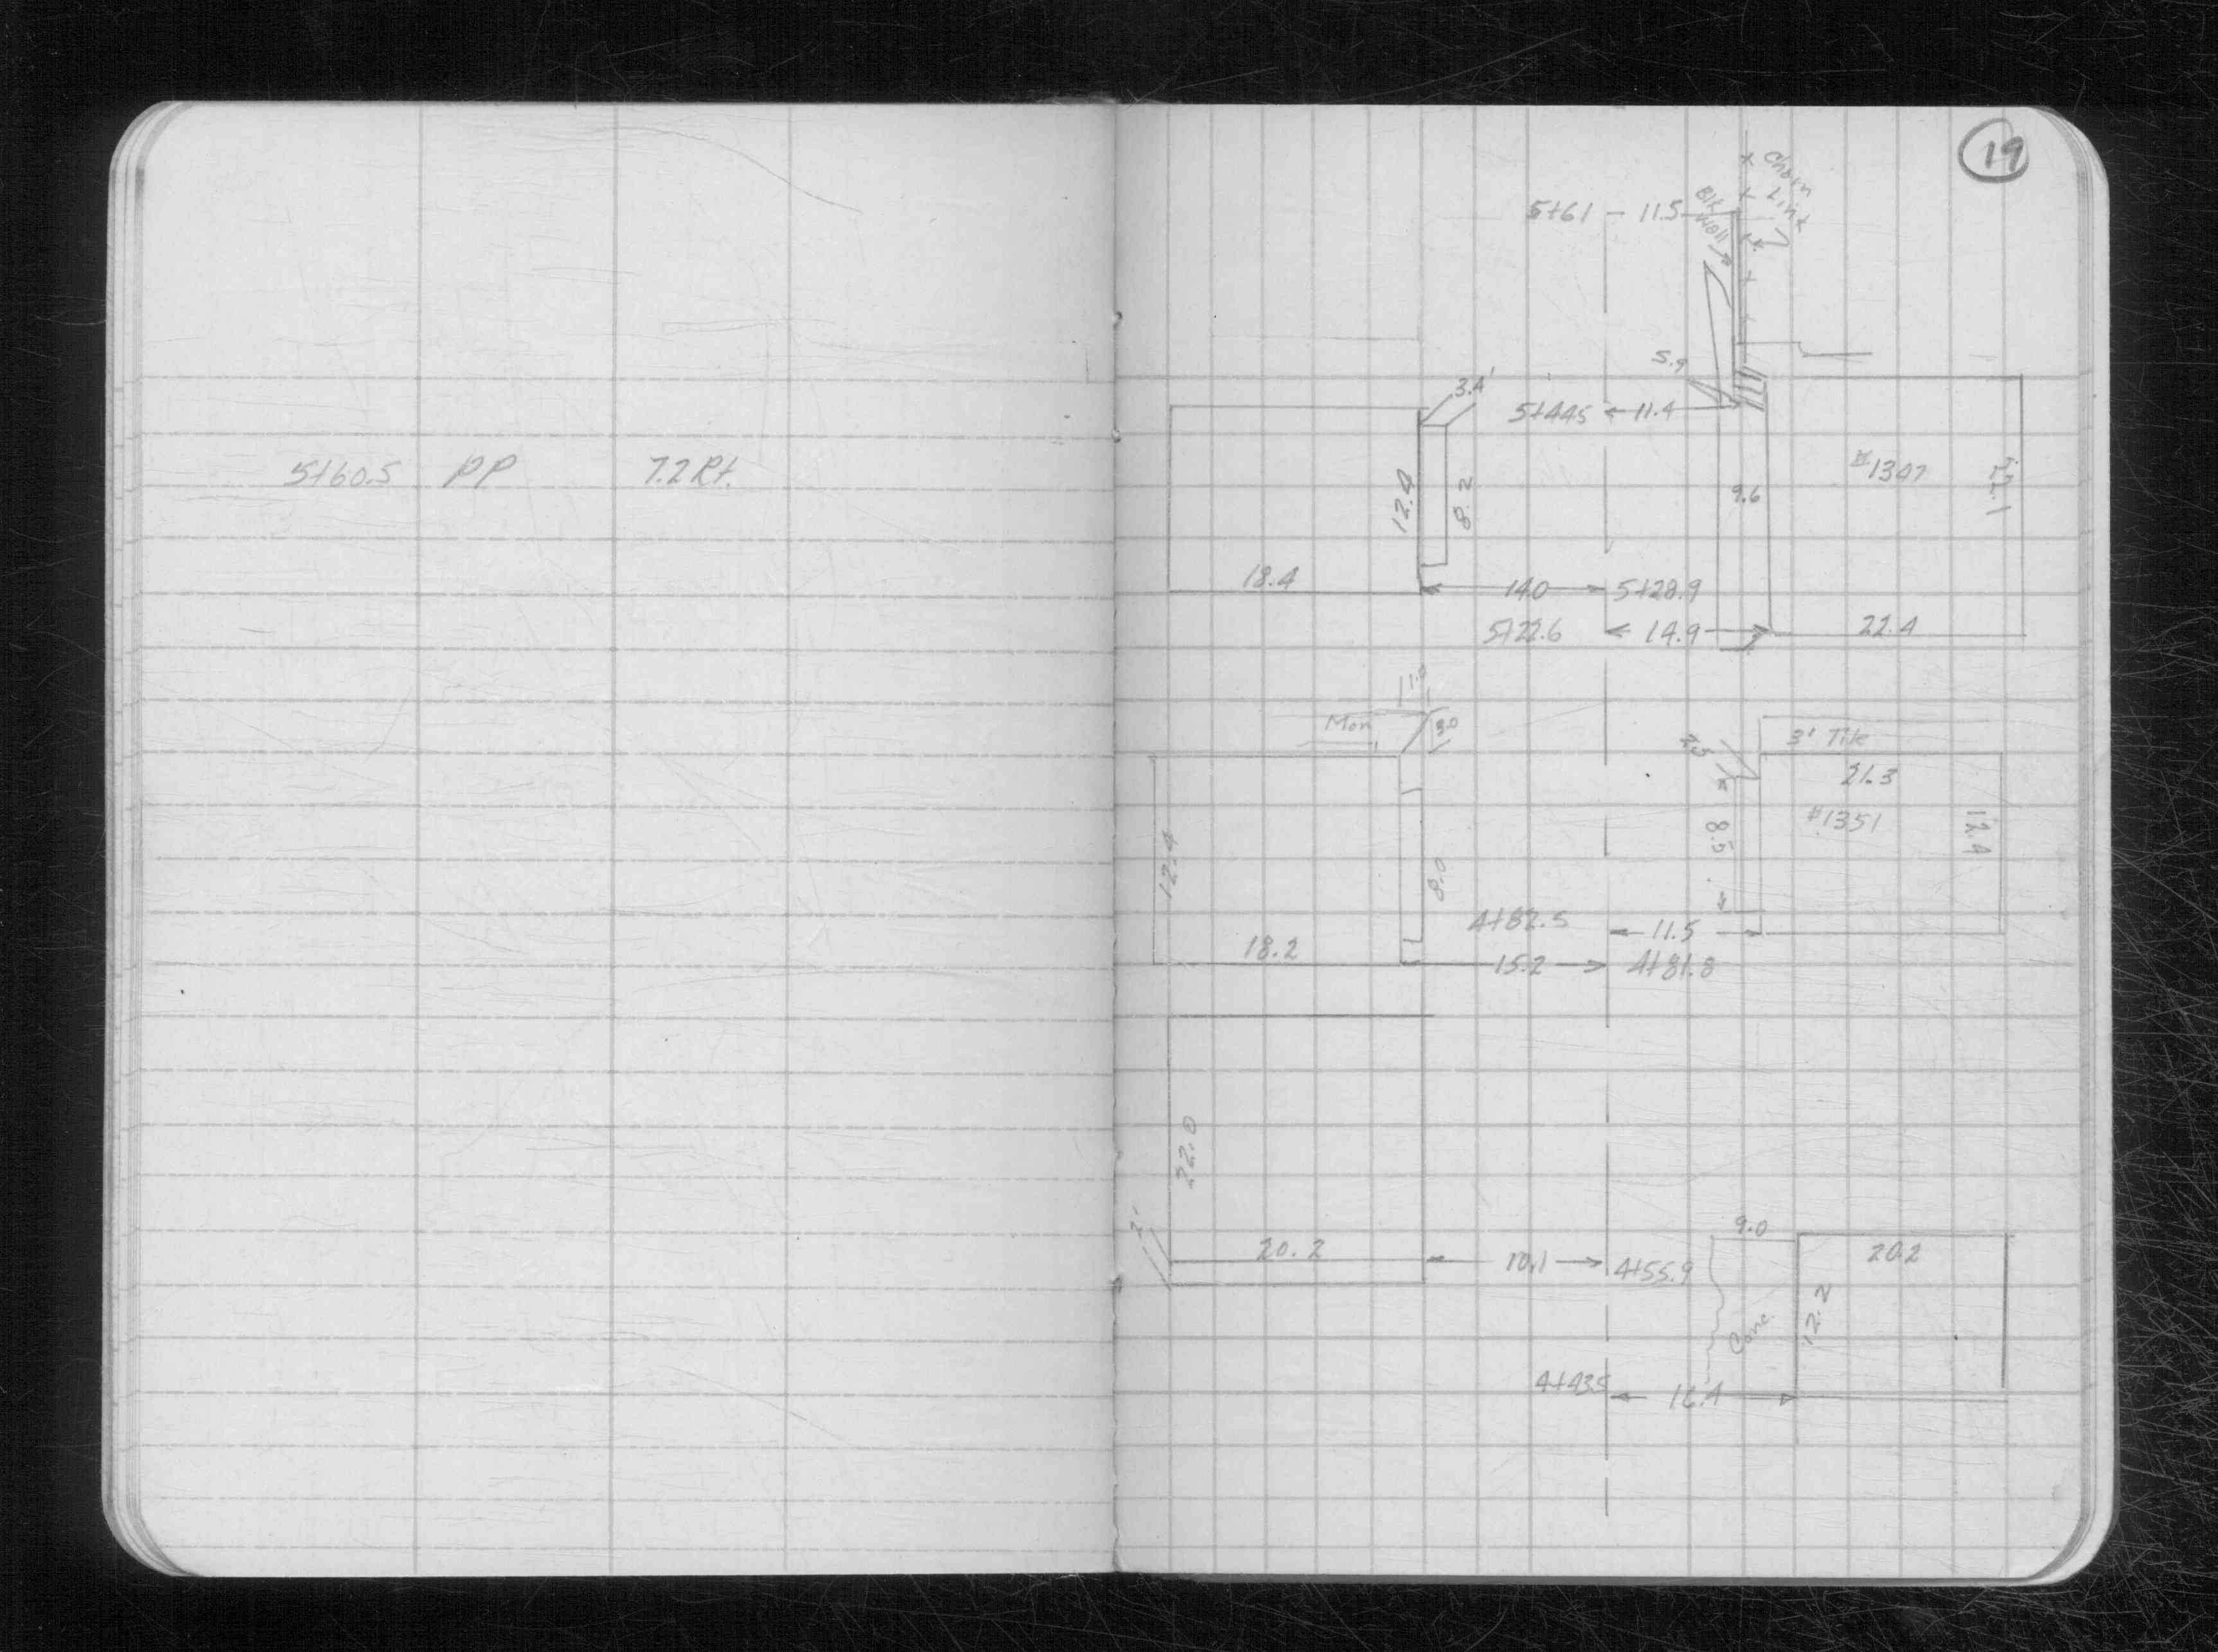 5+60.5 PP 7.2 Rt.
19
Chain
Link
Blk
Wall
5+61 - 11.5
5.9
3.4'
5+44.5 11.4
#1347
12.4
8.2
9.6
18.4
14.0 5+28.9
5+22.6 14.9 22.4
11.0
Mon 3.0
3' Tile
21.3
#1351
12.4
8.5
12.4
8.0
4+82.5 11.5
18.2
15.2 4+81.8
22.0
2'
9.0
20.2
10.1 4+55.9
20.2
12.2
Conc.
4+43.5